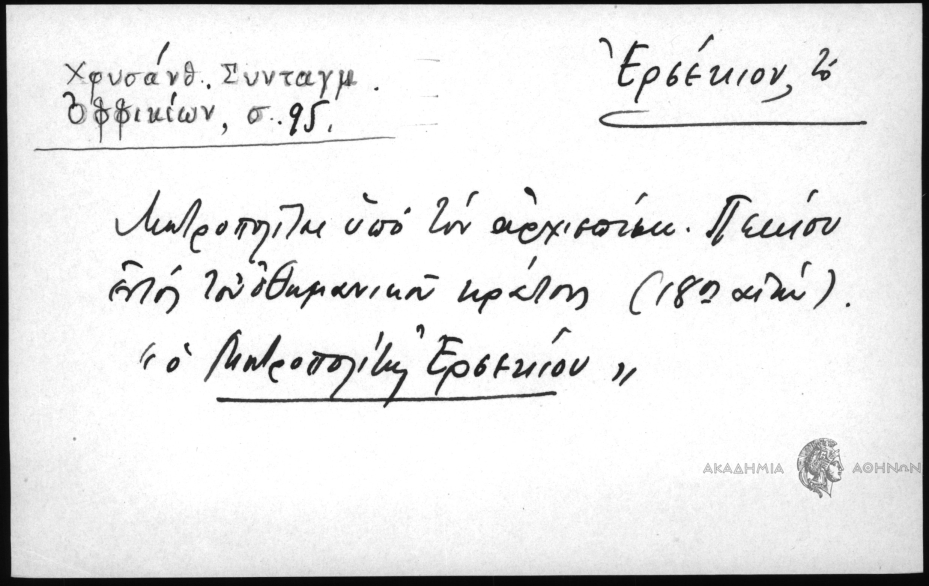 Χρυσάνθ. Συνταγμ.
Ὀφφικίων, σ. 95.
Ἐρσέκιον, τὸ
Μητροπολίτης ὑπὸ τὸν ἀρχιεπίσκ. Πεκίου
ἐντὸς τοῦ ὀθωμανικοῦ κράτους (18ος αἰών).
"ὁ Μητροπολίτης Ἐρσεκίου"
ΑΚΑΔΗΜΙΑ ΑΘΗΝΩΝ